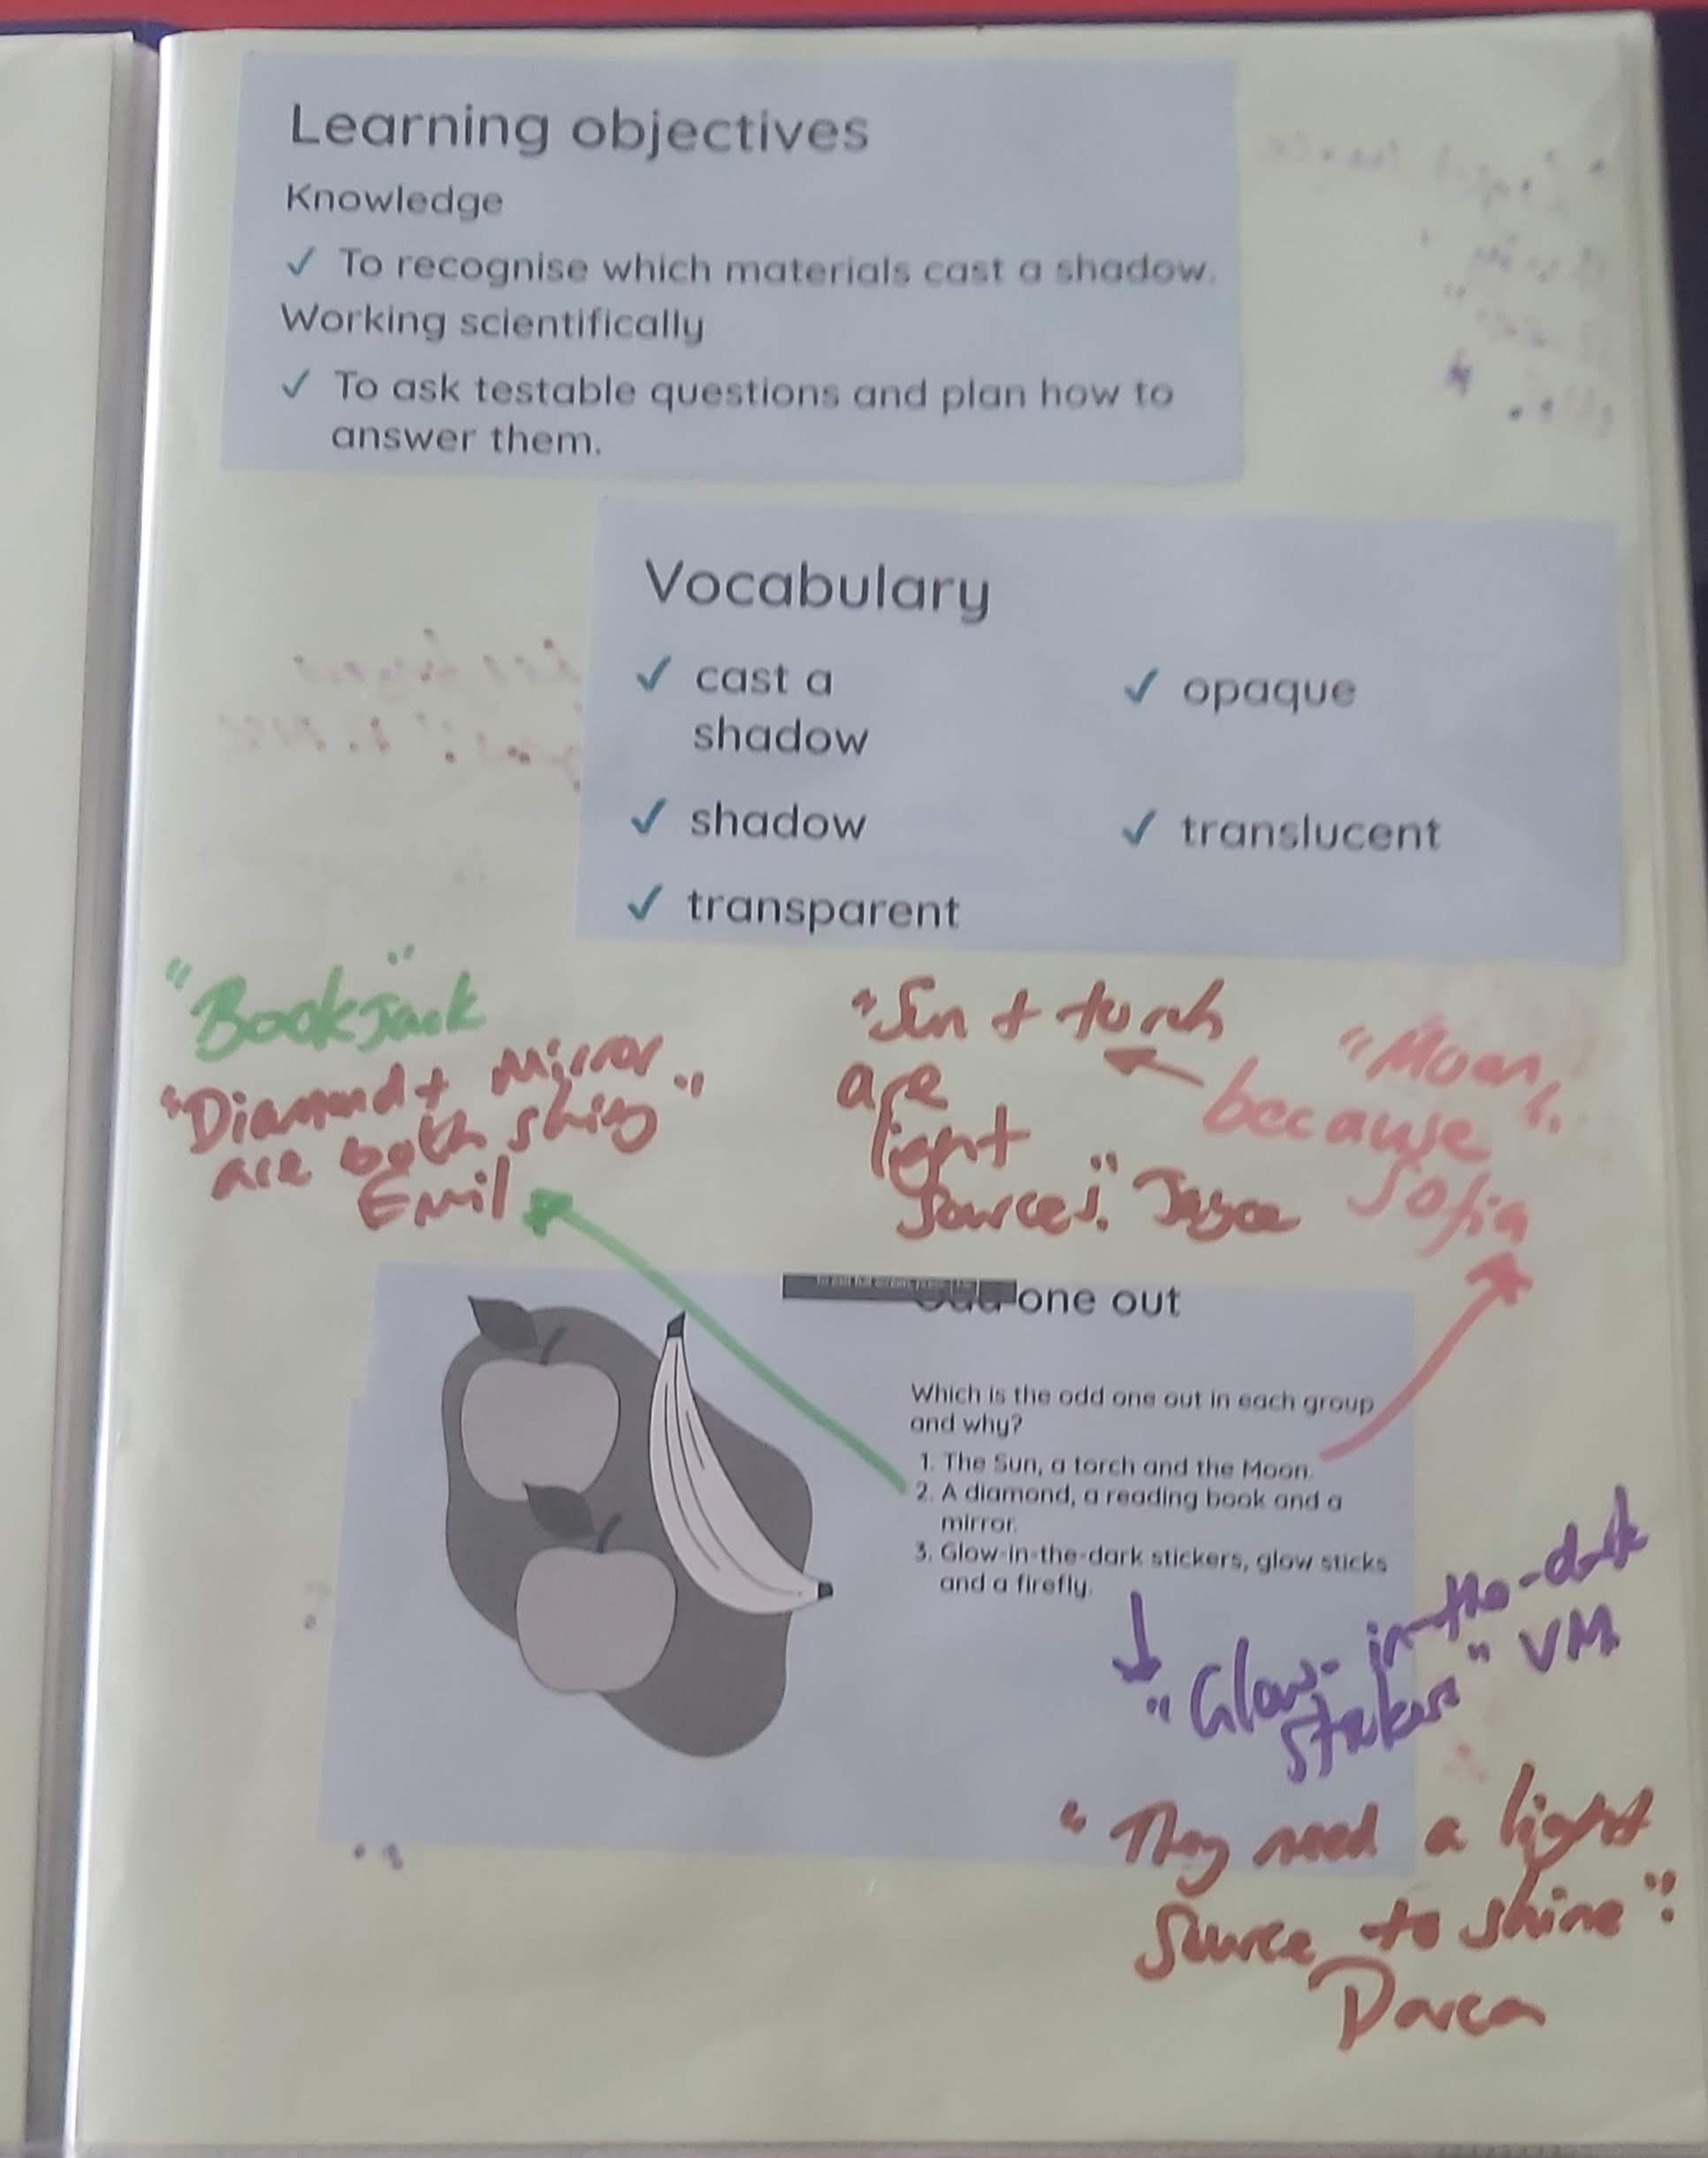 Learning objectives
Knowledge
✓ To recognise which materials cast a shadow.
Working scientifically
✓ To ask testable questions and plan how to
answer them.
Vocabulary
✓ cast a
shadow
✓ shadow
✓ transparent
✓ opaque
✓ translucent
"Book" Jack
"Diamond + Mirror
are both shiny"
Emil
"Sun + torch
are
light
sources." 
"Moon"
because
Sofia
one out
Which is the odd one out in each group
and why?
1. The Sun, a torch and the Moon.
2. A diamond, a reading book and a
mirror.
3. Glow-in-the-dark stickers, glow sticks
and a firefly.
"Glow-in-the-dark
stickers" VM
"They need a light
source to shine".